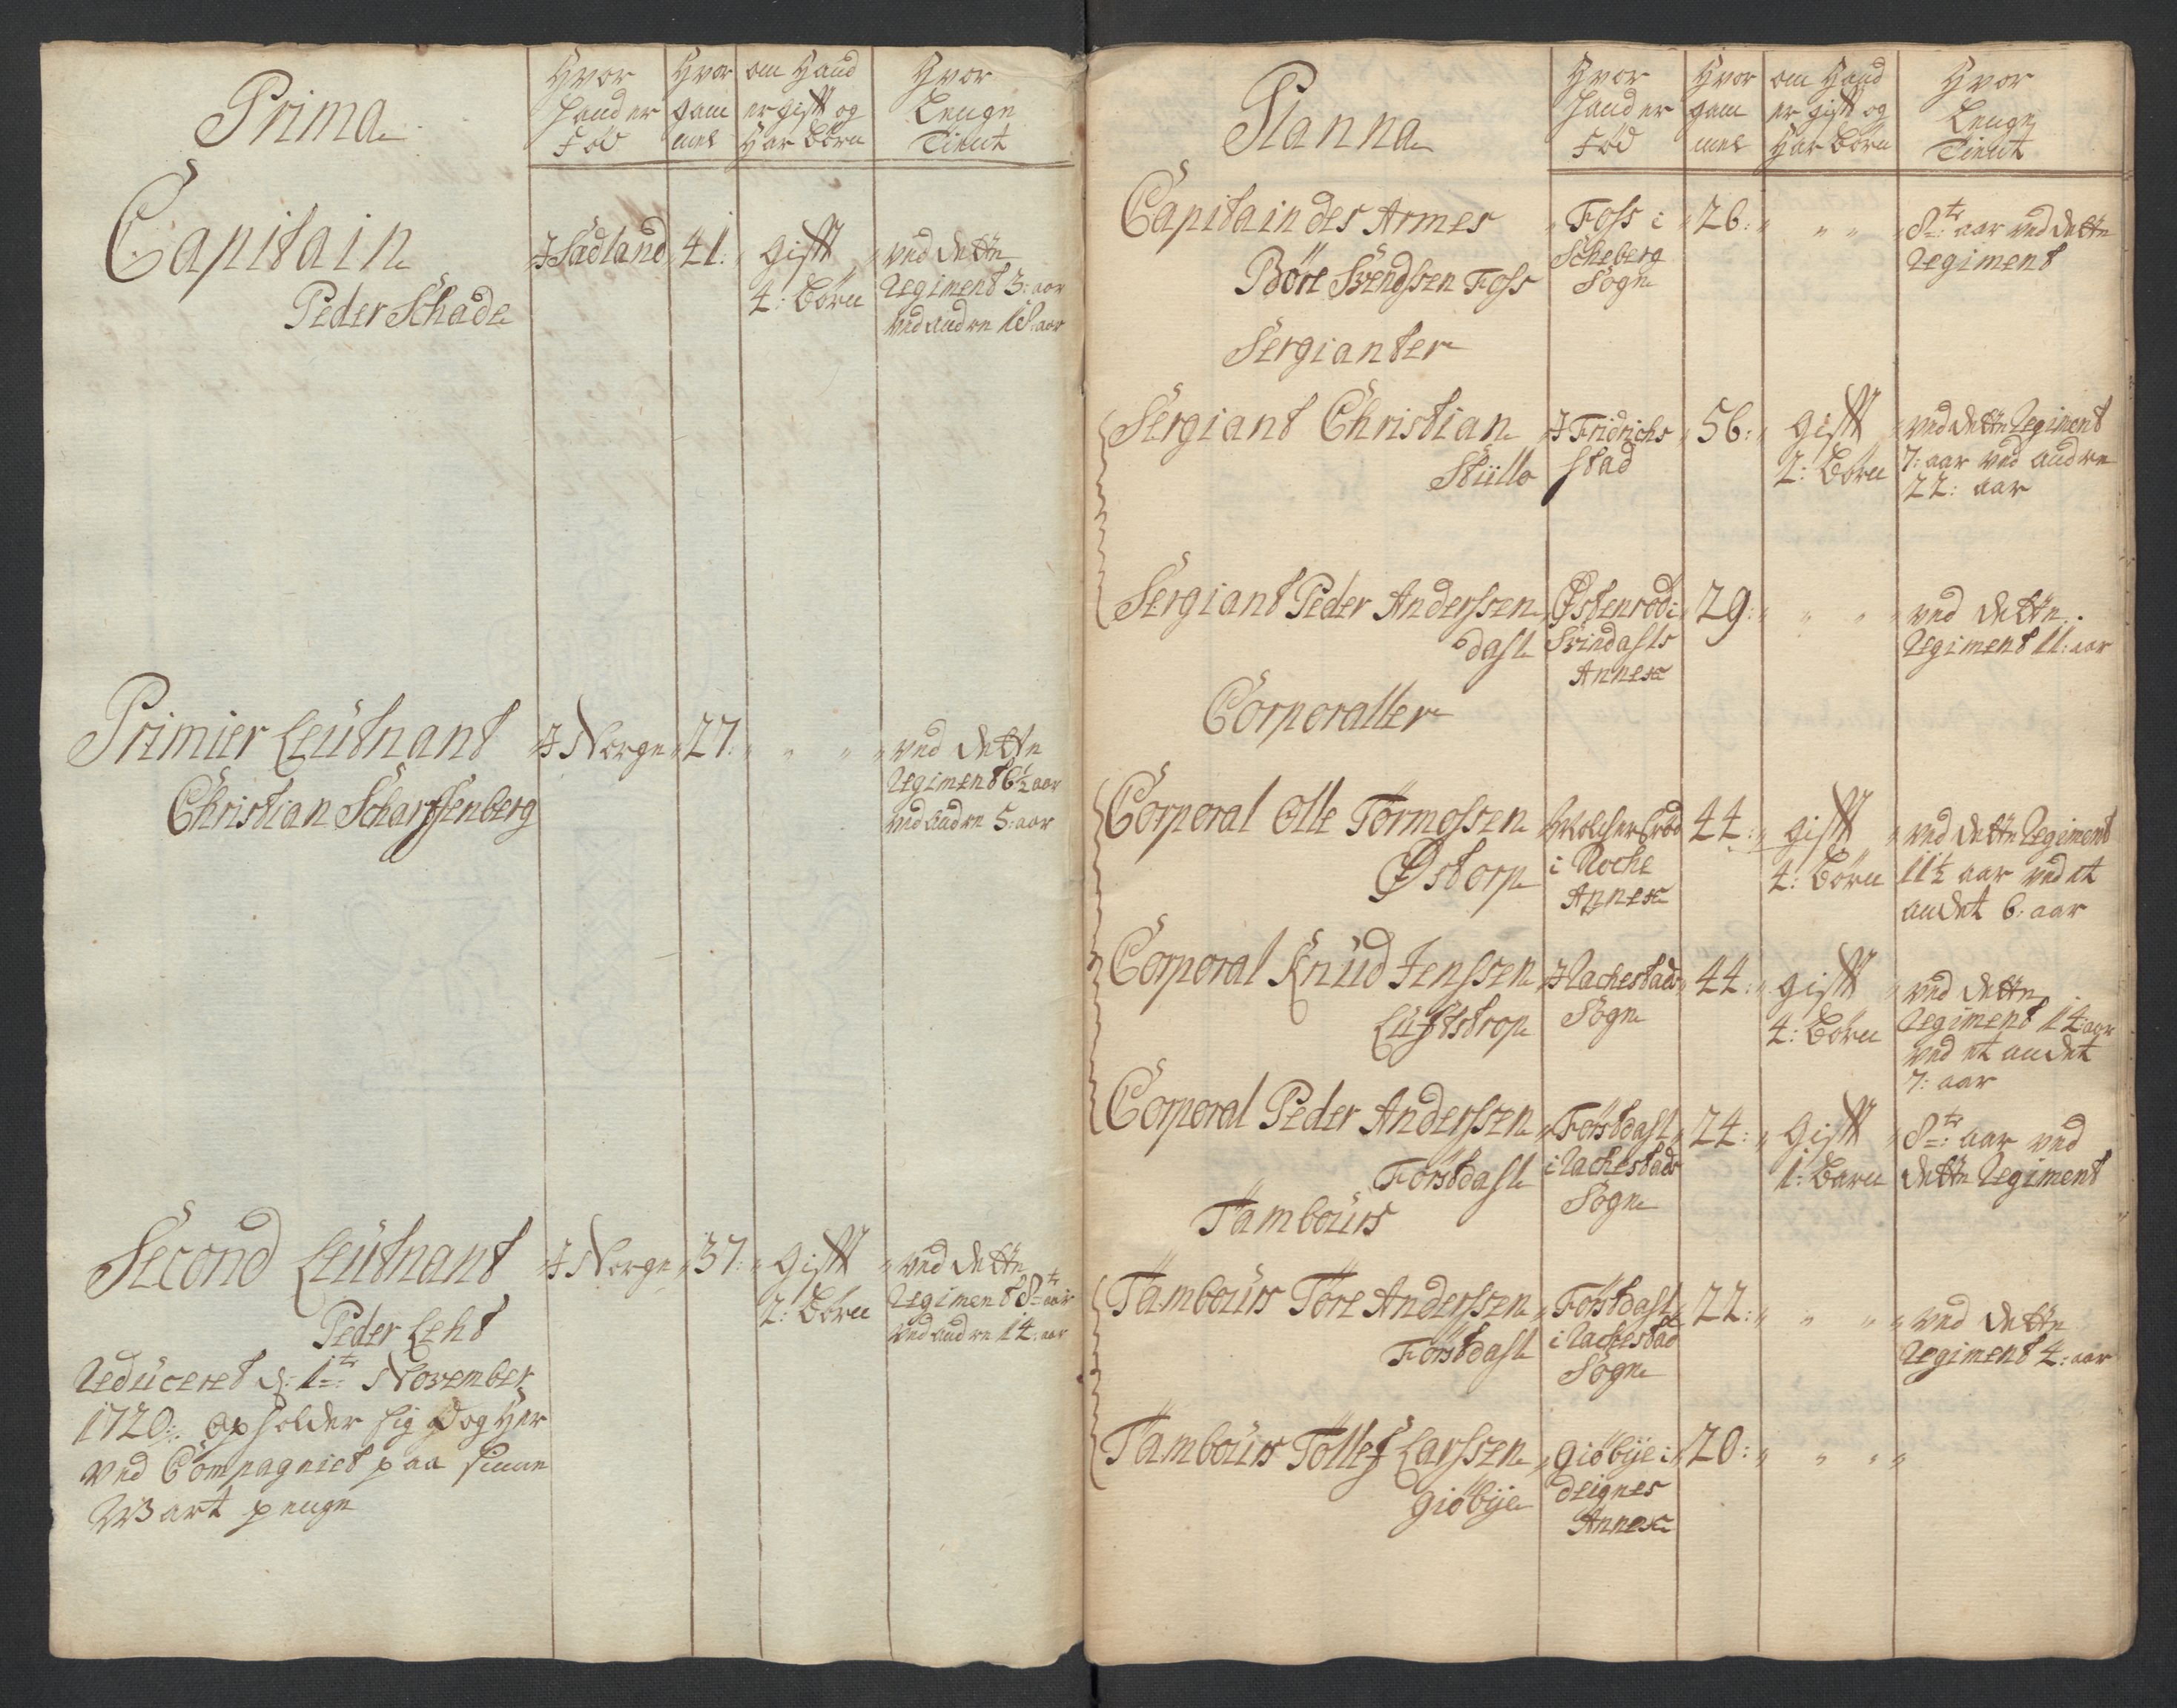 Prima
Hvor
Hand er
Fød
Hvor
gam
mel
om Hand
er gift og
Har Børn
Hvor
Lenge
Tient
Capitain
Peder Schade
J Sadland
41:
gift
4: Børn
ved dette
Regiment 3: aar
ved andre 18: aar
Primier Leütnant
Christian Scharffenberg
J Norge
27:
ved dette
Regiment 6½ aar
ved andre 5: aar
Second Leütnant
Peder Leht
J Norge
37:
gift
2: Børn
ved dette
Regiment 8te aar
ved andre 14: aar
Reduceret d: 1te November
1720: opholder sig dog Her
ved Compagniet paa sinne
Wart penge
Planna
Hvor
Hand er
Fød
Hvor
gam
mel
om Hand
er gift og
Har Børn
Hvor
Lenge
Tient
Capitain des Armes
Böre Svendssen Foss
Foss i
Scheberg
Sogn
26:
8te aar ved dette
Regiment
Sergianter
Sergiant Christian
Stüllo
J Fridrichs
stad
56:
gift
2: Børn
ved dette Regiment
7: aar ved andre
22: aar
Sergiant Peder Anderssen
dahl
Østenrød i
Svindahls
Annex
29:
ved dette
Regiment 11: aar
Corporaller
Corporal Olle Tormossen
Østorp
i Roche
Annex
44:
gift
4: Børn
ved dette Regiment
11½ aar ved et
andet 6: aar
Corporal Knüd Jenssen
Lüftstrop
J Rachestads
Sogn
44:
gift
4: Børn
ved dette
Regiment 14: aar
ved et andet
7: aar
Corporal Peder Anderssen
Förstdahl
Förstdahl
i Rachestads
Sogn
24:
gift
1: Barn
8te aar ved
dette Regiment
Tambours
Tambours Töre Anderssen
Förstdahl
Förstdahl
i Rachestad
Sogn
22:
ved dette
Regiment 4: aar
Tambours Töllef Larssen
Giöbÿe
Giöbÿe i
deignes
Annex
20: